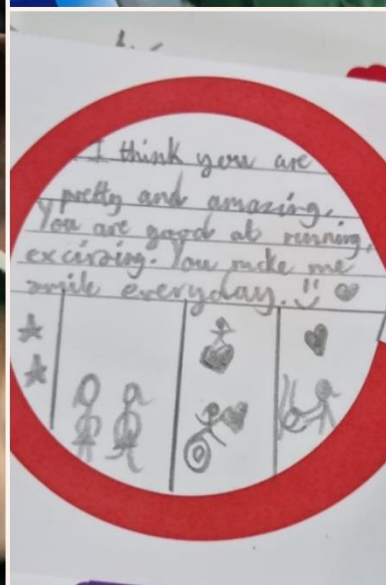 I think you are
pretty and amazing.
You are good at running,
excirsing. You make me
smile everyday. :) ♡